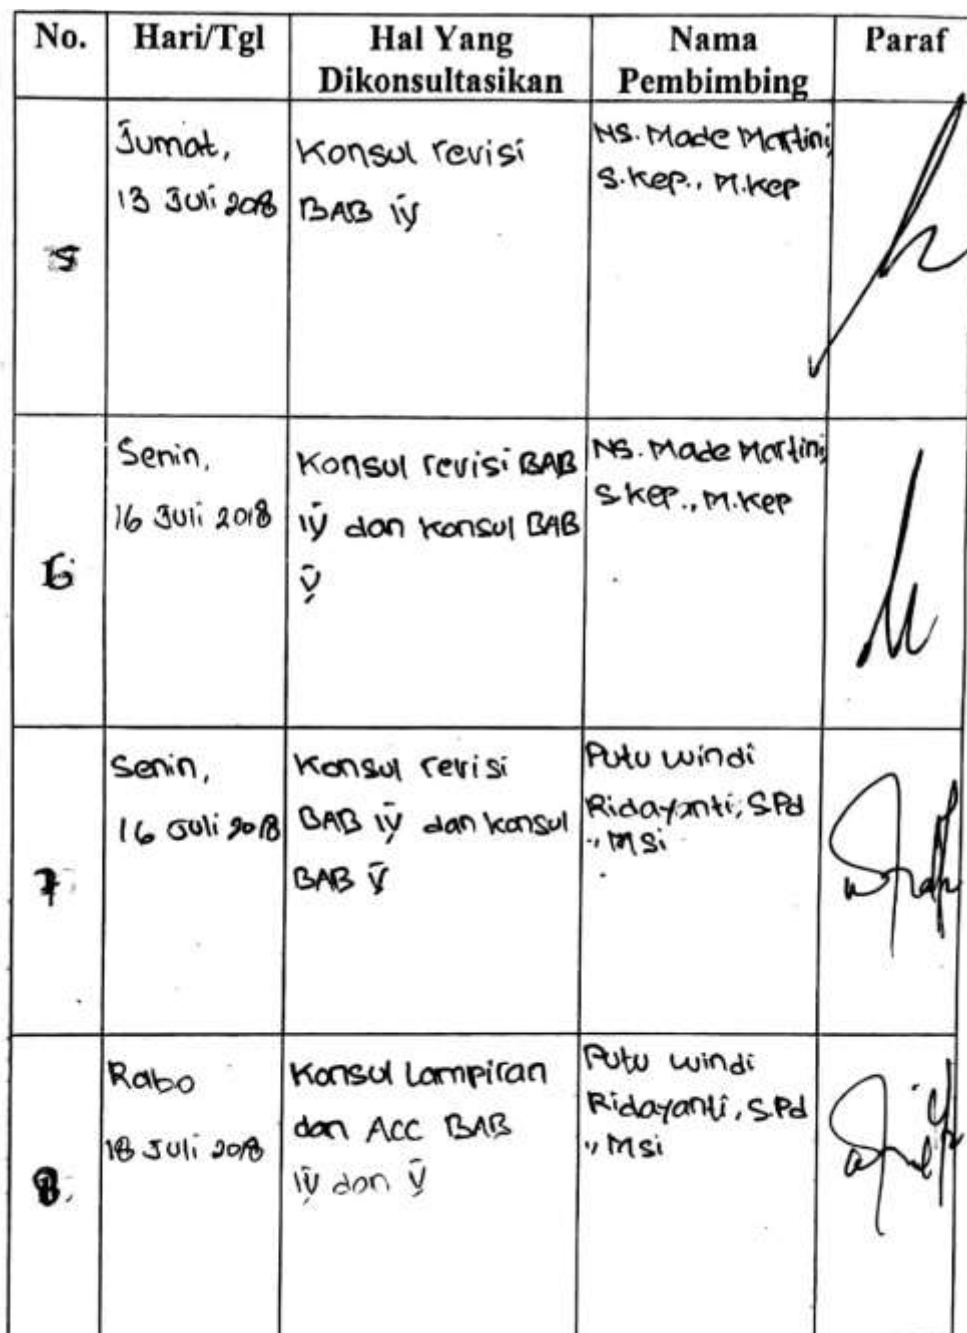 No. Hari/Tgl Hal Yang Dikonsultasikan Nama Pembimbing Paraf
5
Jumat,
13 Juli 2018
Konsul revisi
BAB IV
NS. Made Martini,
S.Kep., M.Kep
6
Senin,
16 Juli 2018
Konsul revisi BAB
IV dan Konsul BAB
V
NS. Made Martini,
S.Kep., M.Kep
7
Senin,
16 Juli 2018
Konsul revisi
BAB IV dan konsul
BAB V
Putu Windi
Ridayanti, S.Pd
., M Si
8.
Rabo
18 Juli 2018
Konsul Lampiran
dan ACC BAB
IV dan V
Putu Windi
Ridayanti, S.Pd
., M Si